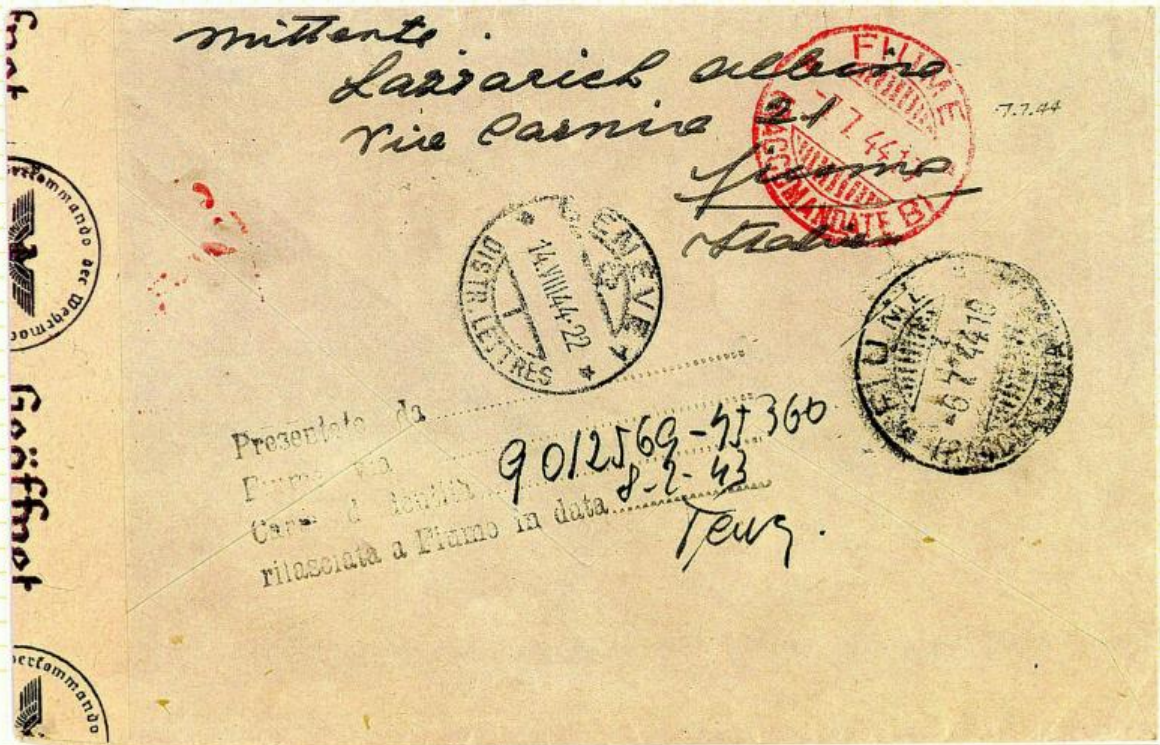 Mittente
Lazzarich Albino
Via Carnia 21
Fiume
Italia
FIUME
-7.7.44.17
RACCOMANDATE B)
-7.7.44
GENÈVE 1
14.VIII.44-22
DISTR. LETTRES
FIUME
-6.7.44.18
Presentata da
Fiume via
Carta d'identità 9012569-45360
rilasciata a Fiume in data 8-2-43
Geöffnet
Oberkommando der Wehrmacht
Geöffnet
Oberkommando